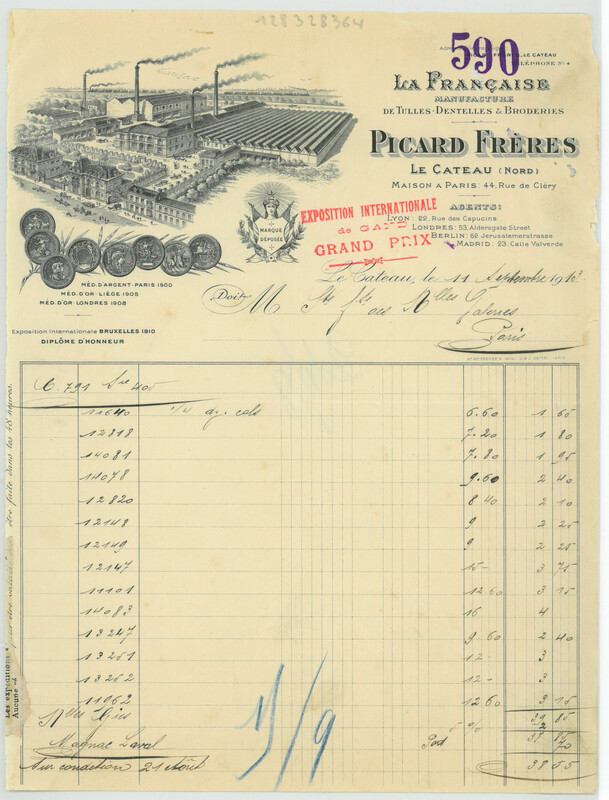 128328364
590
LE CATEAU
TÉLÉPHONE No 4
LA FRANÇAISE
MANUFACTURE
DE TULLES-DENTELLES & BRODERIES
PICARD FRÈRES
LE CATEAU (NORD)
MAISON A PARIS: 44, Rue de Cléry
AGENTS:
LYON: 22, Rue des Capucins
LONDRES: 53, Aldersgate Street
BERLIN: 62 Jerusalemerstrasse
MADRID: 23, Calle Valverde
MARQUE
DÉPOSÉE
EXPOSITION INTERNATIONALE
de GAND
GRAND PRIX
MÉD. D'ARGENT-PARIS 1900
MÉD. D'OR-LIÈGE 1905
MÉD. D'OR-LONDRES 1908
Exposition Internationale BRUXELLES 1910
DIPLÔME D'HONNEUR
Le Cateau, le 11 Septembre 1913
Doit M
des Galeries
Paris
C. 791 Sre 405
11640 1/4 gr. cols 6.60 1 65
12818 7.20 1 80
14081 7.80 1 95
14078 9.60 2 40
12820 8 40 2 10
12148 9 2 25
12149 9 2 25
12147 15 - 3 75
11101 12 60 3 15
14083 16 4
13247 9 60 2 40
13251 12 - 3
13252 12 - 3
11962 12 60 3 15
39 85
5 % 2
Magnac Laval
Port 70
Sur condition 21 Août 38 55
11/9
Les expéditions
Aucune
être faite dans les 48 heures.